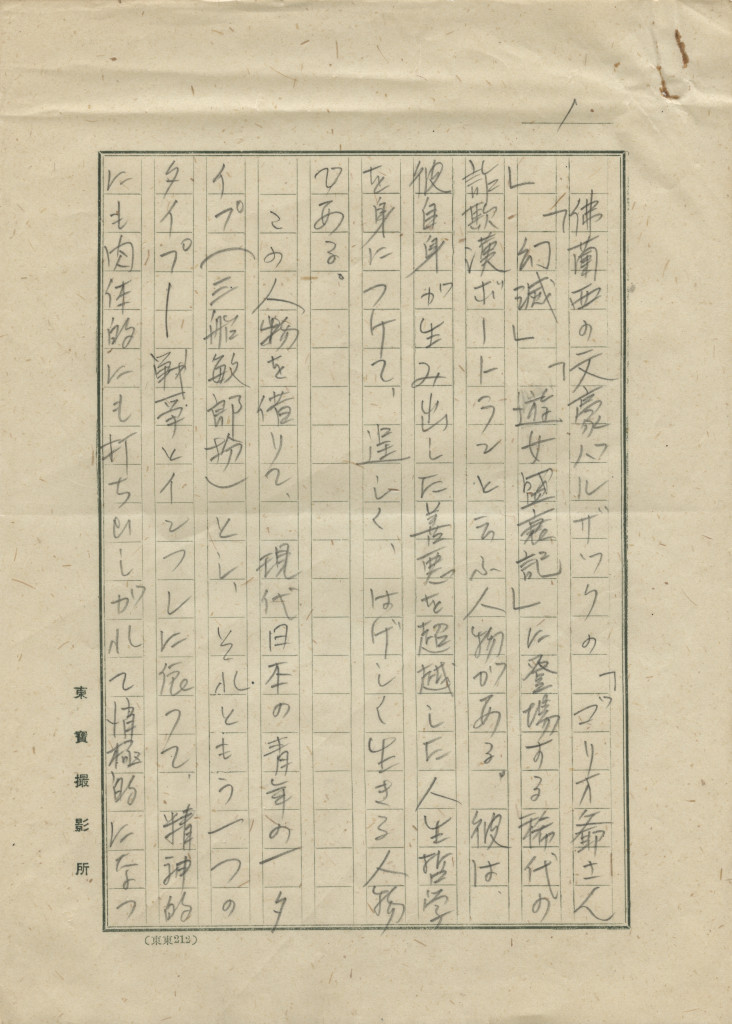 1.
佛蘭西の文豪バルザックの「ゴリオ爺さん
」「幻滅」「遊女盛衰記」に登場する稀代の
詐欺漢ボートランと云ふ人物がある。彼は
彼自身が生み出した善悪を超越した人生哲学
を身につけて、逞しく、はげしく生きる人物
である。
この人物を借りて、現代日本の青年の一タ
イプ(三船敏郎扮)とし、それともう一つの
タイプ―戦爭とインフレに依つて、精神的
にも肉体的にも打ちひしがれて消極的になつ
東寶撮影所
(東東212)